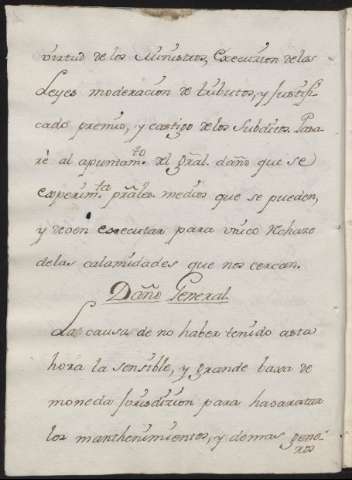 virtud de los Ministros, Execucion de las
Leyes moderacion de tributos, y Justifi-
cado premio, y castigo de los Subditos. Pasa-
ré al apuntam.to del gral. daño que se
experim.ta prāles medios que se pueden,
y deven executar para unico rechazo
de las calamidades que nos cercan.
Daño General.
La causa de no haber tenido asta
hora la sensible, y grande baxa de
moneda Jurisdicion para habaratar
los manthenimientos, y demas gene-
ros